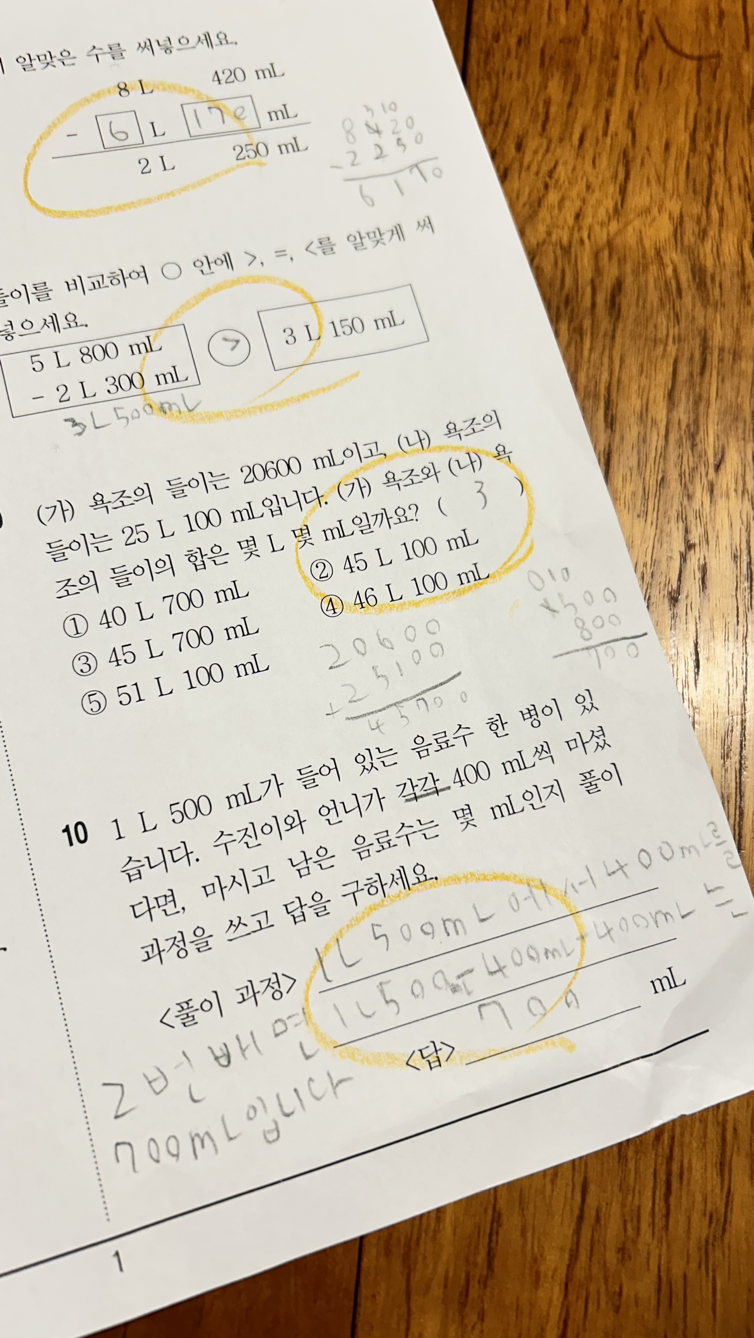 알맞은 수를 써넣으세요.
8 L 420 mL
- 6 L 170 mL
2 L 250 mL
3 10
8 4 2 0
- 2 2 5 0
6 1 7 0
들이를 비교하여 ○ 안에 >, =, <를 알맞게 써
넣으세요.
5 L 800 mL
- 2 L 300 mL
>
3 L 150 mL
3L500mL
(가) 욕조의 들이는 20600 mL이고, (나) 욕조의
들이는 25 L 100 mL입니다. (가) 욕조와 (나) 욕
조의 들이의 합은 몇 L 몇 mL일까요? ( 3 )
① 40 L 700 mL ② 45 L 100 mL
③ 45 L 700 mL ④ 46 L 100 mL
⑤ 51 L 100 mL
20600
+ 25100
45700
0 10
1500
800
700
10 1 L 500 mL가 들어 있는 음료수 한 병이 있
습니다. 수진이와 언니가 각각 400 mL씩 마셨
다면, 마시고 남은 음료수는 몇 mL인지 풀이
과정을 쓰고 답을 구하세요.
<풀이 과정> 1L 500mL에서 400mL를
2번 빼면 1L500-400mL-400mL는
700mL입니다
<답> 700 mL
1